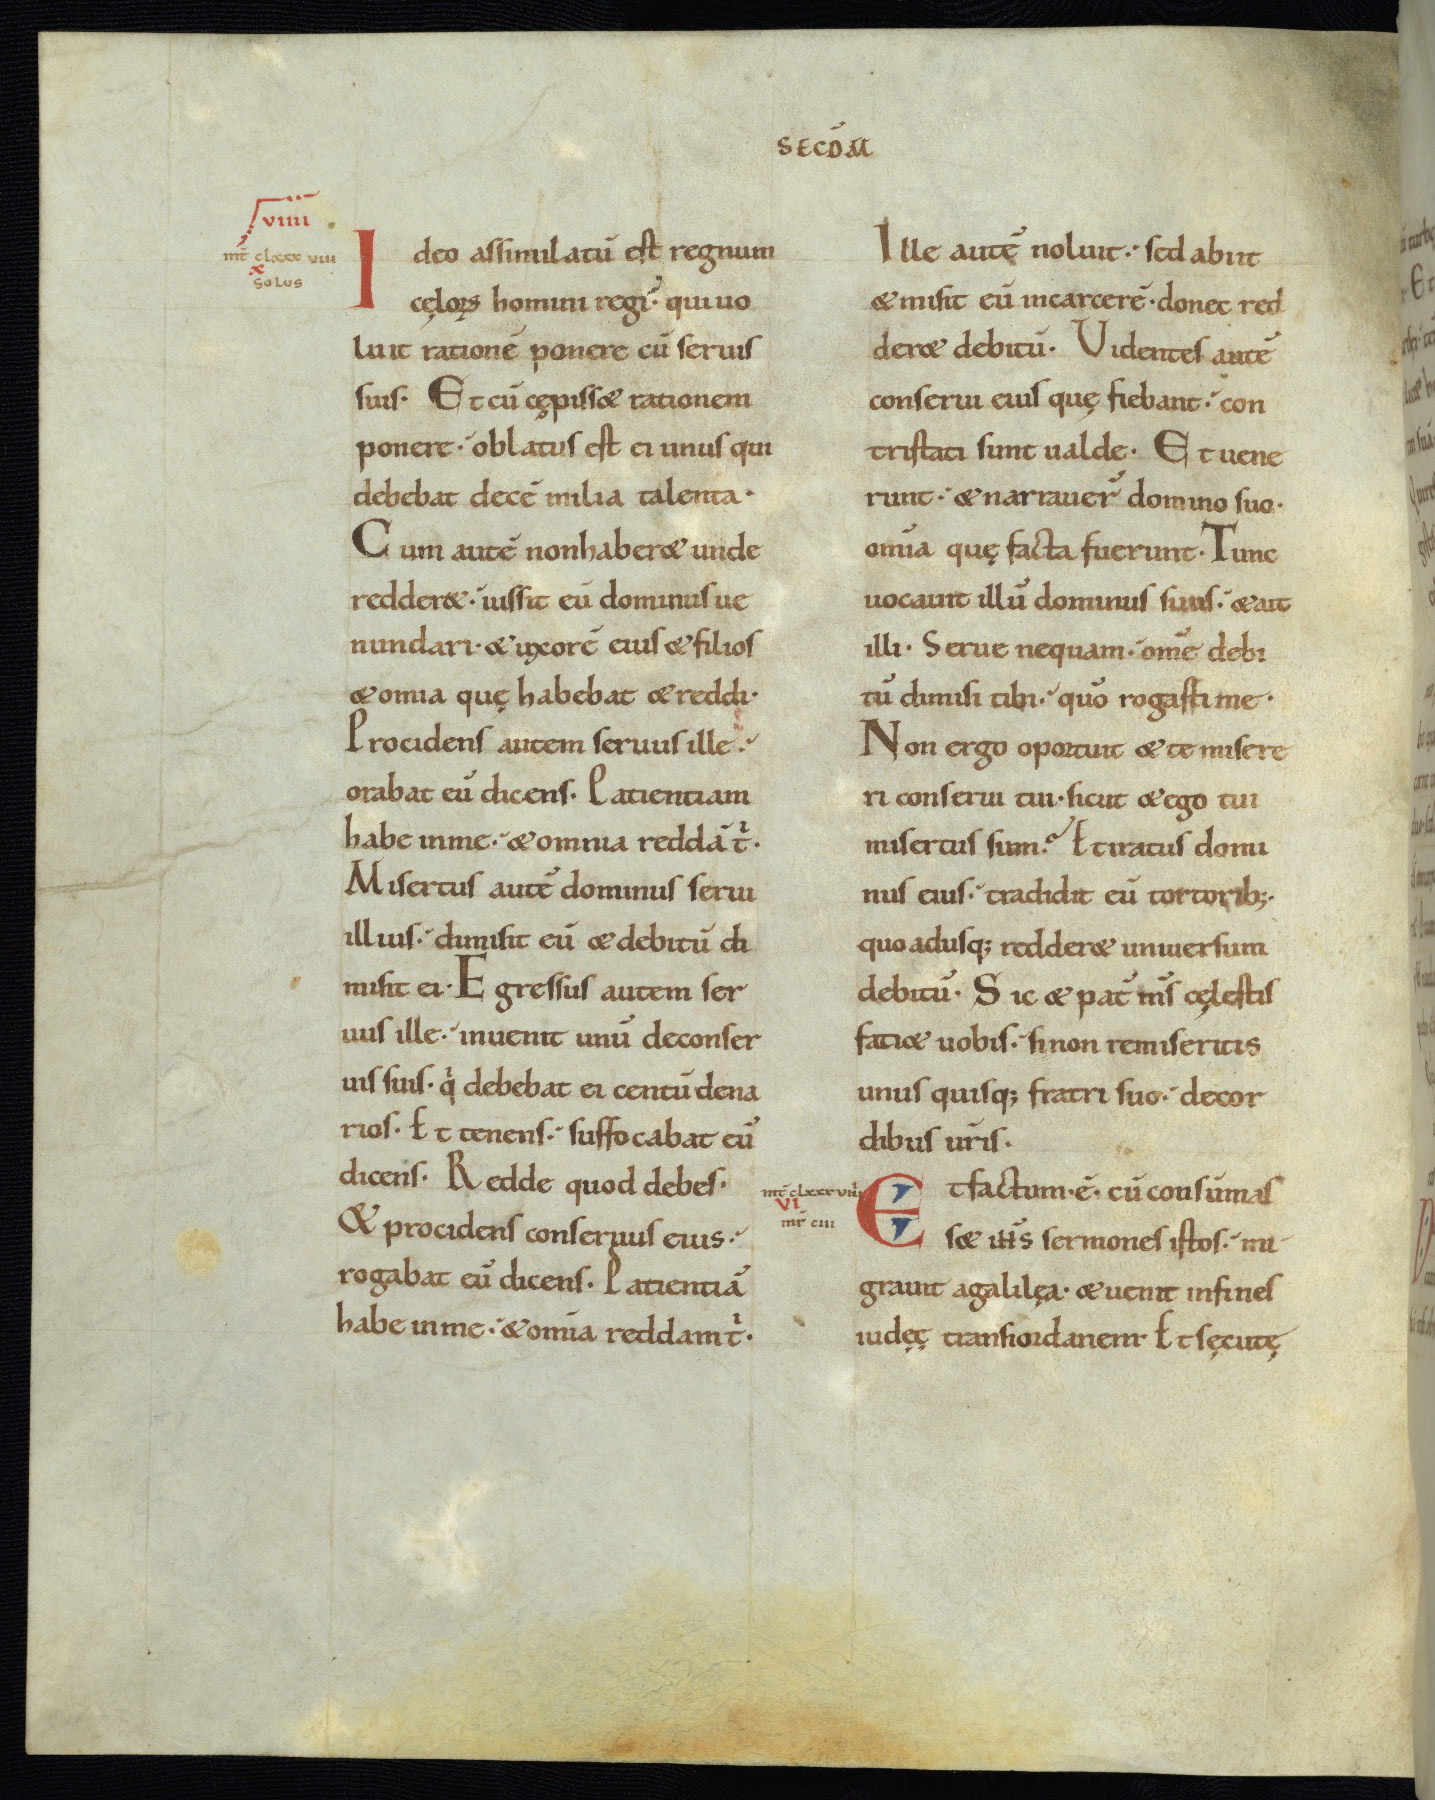 SECD̄M
VIIII
mt̄ clxxx viii
X
SOLUS
Ideo assimilatū est regnum
cęloꝝ homini regi· qui uo
luit rationē ponere cū seruis
suis· Et cū cępiss& rationem
ponere· oblatus est ei unus qui
debebat decē milia talenta·
Cum autē nonhaber& unde
redder&· iussit eū dominus ue
nundari· & uxorē eius & filios
& omia quę habebat & reddi·
Procidens autem seruus ille·
orabat eū dicens· Patientiam
habe inme· & omnia reddā t̄·
Misertus autē dominus serui
illius· dimisit eū & debitū di
misit ei· Egressus autem ser
uus ille· inuenit unū deconser
uis suis· q̇ debebat ei centū dena
rios· Et tenens· suffocabat eū
dicens· Redde quod debes·
& procidens conseruus eius·
rogabat eū dicens· Patientiā
habe inme· & om̄ia reddam t̄·
Ille autē noluit· sed abiit
& misit eū incarcerē· donec red
der& debitū· Videntes autē
conserui eius quę fiebant· con
tristati sunt ualde· Et uene
runt· & narrauer̄ domino suo·
om̄ia quę facta fuerunt· Tunc
uocauit illū dominus suus· & ait
illi· Serue nequam· om̄e debi
tū dimisi tibi· quō rogasti me·
Non ergo oportuit & te misere
ri conserui tui· sicut & ego tui
misertus sum? Et iratus domi
nus eius· tradidit eū tortorib;·
quoadusq; redder& uniuersum
debitū· Sic & pat̄ m̄s cęlestis
faci& uobis· si non remiseritis
unus quisq; fratri suo· decor
dibus ur̄is·
mt̄ clxxx viiii
VI
mr̄ ciii
Et factum·ē· cū consūmas
s& ih̄s sermones istos· mi
grauit agalilęa· & uenit infines
iudęę transiordanem· Et sęcutę